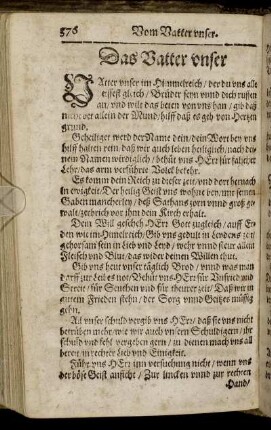 576 Vom Vatter vnser.
Das Vatter vnser
VAtter vnser im Himmelreich / der du vns alle
heissest gleich / Brüder seyn vnnd dich ruffen
an / vnd wilt das beten von vns han / gib daß
nicht bet allein der Mund / hilff daß es geh von Hertzen
grund.
Geheiliget werd der Name dein / dein Wort bey vns
hilff halten rein / daß wir auch leben heiliglich / nach dei-
nem Namen wirdiglich / behüt vns HErr für falscher
Lehr / das arm verführte Volck bekehr.
Es komm dein Reich zu dieser zeit / vnd dort hernach
in ewigkeit / Der heilig Geist vns wohne bey / mit seinen
Gaben mancherley / deß Sathans zorn vnnd groß ge-
walt / zerbrich vor ihm dein Kirch erhalt.
Dein Will gescheh HErr Gott zugleich / auff Er-
den wie im Himmelreich / Gib vns gedult in Leydens zeit
gehorsam seyn in Lieb vnd Leyd / wehr vnnd steur allem
Fleisch vnd Blut / das wider deinen Willen thut.
Gib vns heut vnser täglich Brod / vnnd was man
darff zur Leibes not / Behüt vns HErr für Vnfried vnd
Streit / für Seuchen vnd für theurer zeit / Daß wir in
gutem Frieden stehn / der Sorg vnnd Geitzes müssig
gehn.
All vnser schuld vergib vns HErr / daß sie vns nicht
betrüben mehr / wie wir auch vnsern Schuldigern / ihr
schuld vnd fehl vergeben gern / zu dienen mach vns all
bereit in rechter Lieb vnd Einigkeit.
Führ vns HErr inn versuchung nicht / wenn vns
der böse Geist anficht / Zur lincken vnnd zur rechten
Hand /